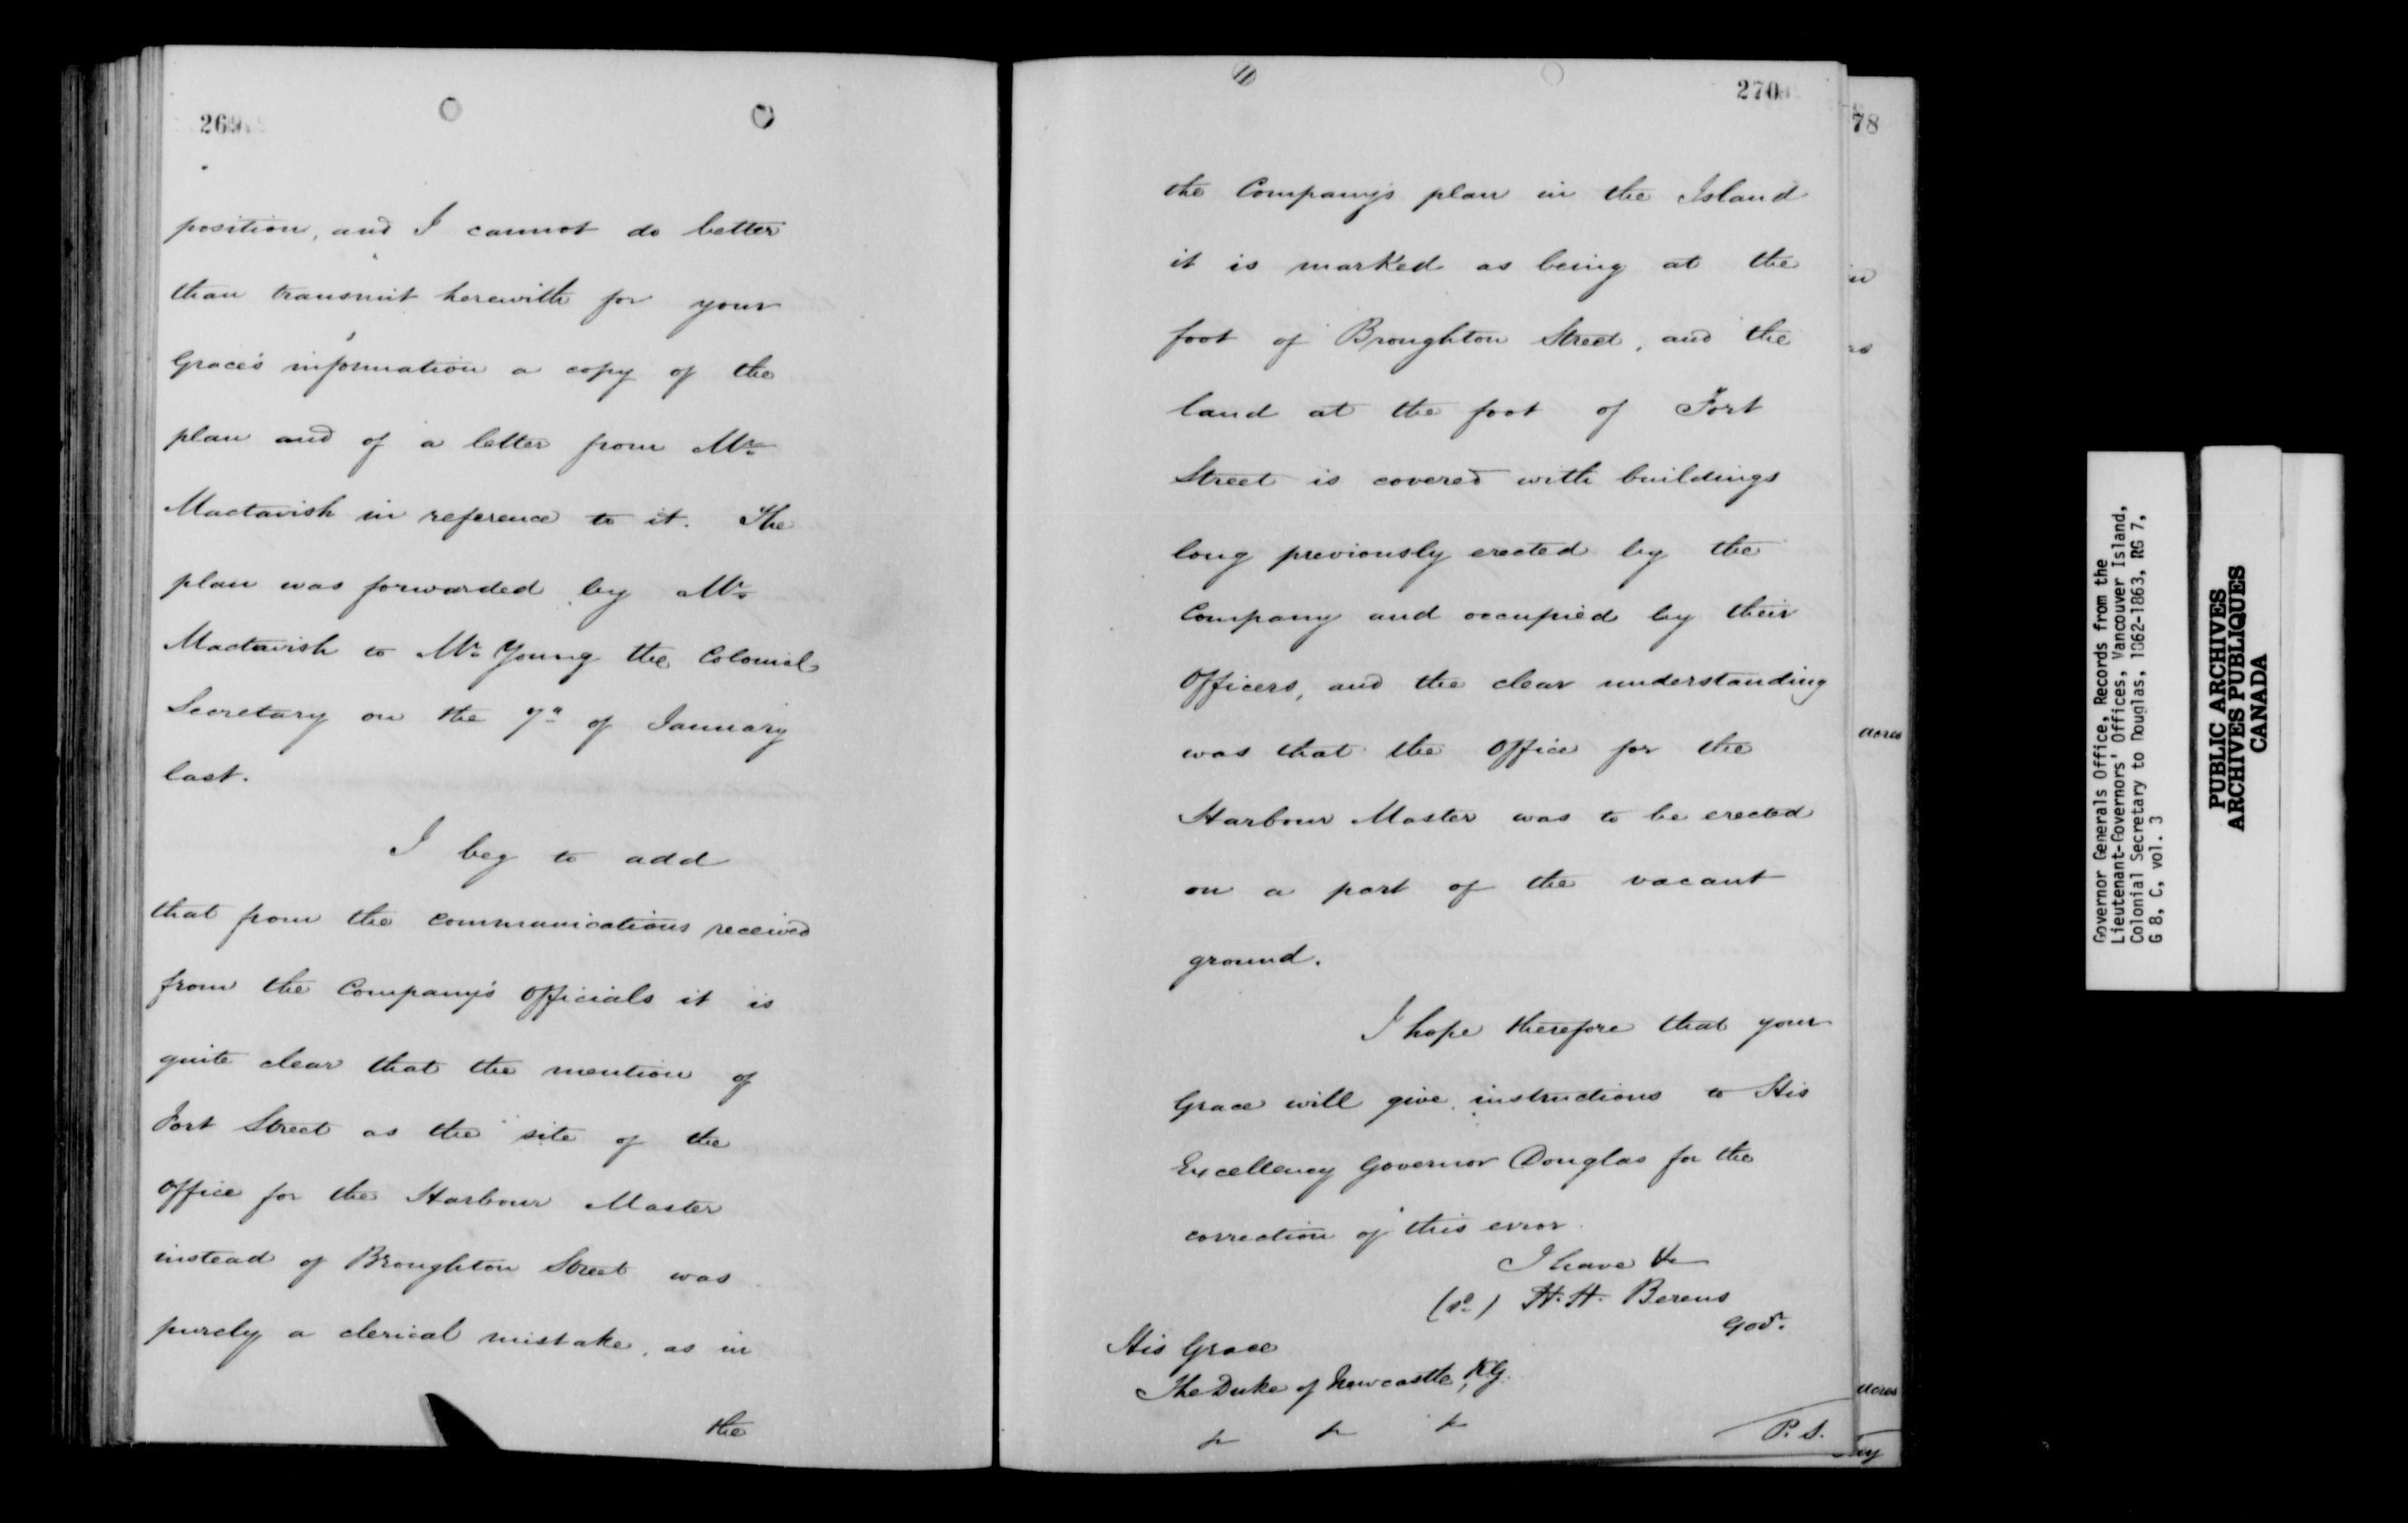 269
position, and I cannot do better
than transmit herewith for your
Grace's information a copy of the
plan and of a letter from Mr.
Mactavish in reference to it. The
plan was forwarded by Mr.
Mactavish to Mr. Young the Colonial
Secretary on the 7th of January
last.
I beg to add
that from the communications received
from the Company's Officials it is
quite clear that the mention of
Fort Street as the site of the
Office for the Harbour Master
instead of Broughton Street was
purely a clerical mistake, as in
the
270
the Company's plan in the Island
it is marked as being at the
foot of Broughton Street, and the
land at the foot of Fort
Street is covered with buildings
long previously erected by the
Company and occupied by their
Officers, and the clear understanding
was that the Office for the
Harbour Master was to be erected
on a part of the vacant
ground.
I hope therefore that your
Grace will give instructions to His
Excellency Governor Douglas for the
correction of this error.
I have &c
(sd) H. H. Berens
Govr.
His Grace
The Duke of Newcastle, K.G.
P.S.
78
in
as
acres
acres
Governor Generals Office, Records from the
Lieutenant-Governors' Offices, Vancouver Island,
Colonial Secretary to Douglas, 1862-1863, RG 7,
G 8, C, vol. 3
PUBLIC ARCHIVES
ARCHIVES PUBLIQUES
CANADA